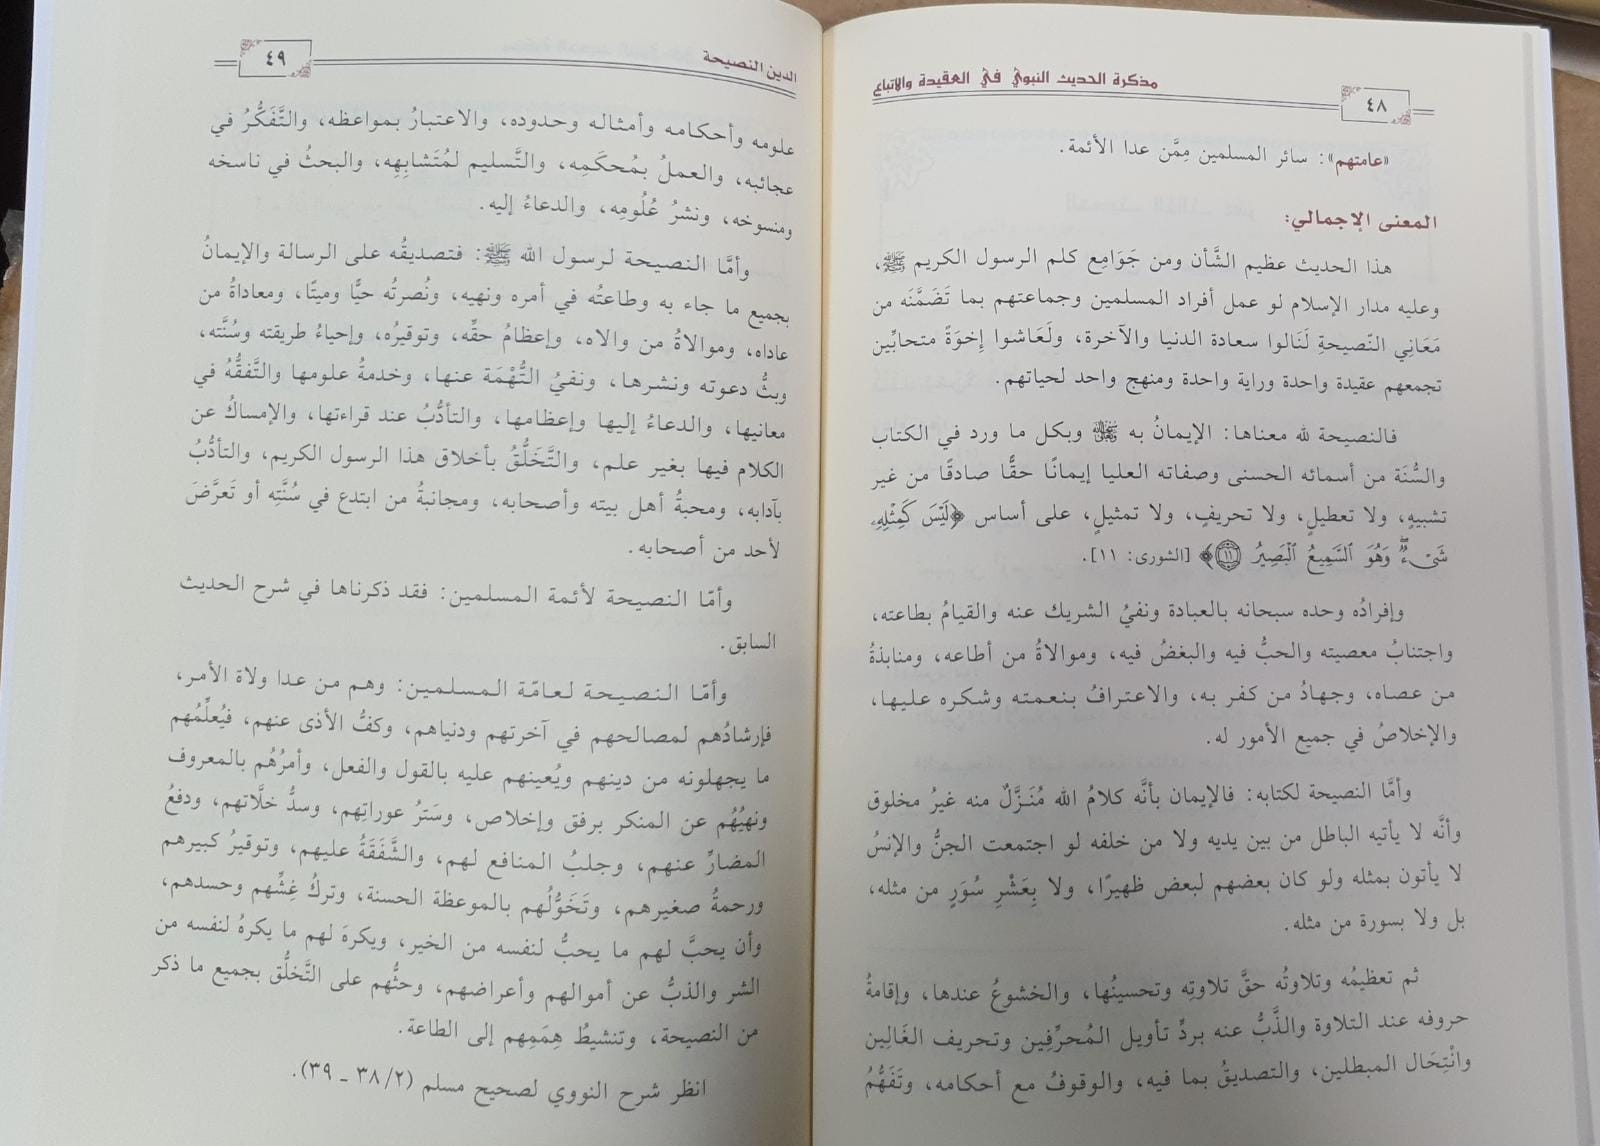 مذكرة الحديث النبوي في العقيدة والاتباع
٤٨
«عامتهم»: سائر المسلمين مِمَّن عدا الأئمة.
المعنى الإجمالي:
هذا الحديث عظيم الشَّأن ومن جَوَامِع كلم الرسول الكريم ﷺ،
وعليه مدار الإسلام لو عمل أفراد المسلمين وجماعتهم بما تَضَمَّنَه من
مَعَانِي النّصيحةِ لَنَالوا سعادة الدنيا والآخرة، ولَعَاشوا إِخوَةً متحابِّين
تجمعهم عقيدة واحدة وراية واحدة ومنهج واحد لحياتهم.
فالنصيحة لله معناها: الإيمانُ به ﷻ وبكل ما ورد في الكتاب
والسُّنَة من أسمائه الحسنى وصفاته العليا إيمانًا حقًّا صادقًا من غير
تشبيهٍ، ولا تعطيلٍ، ولا تحريفٍ، ولا تمثيلٍ، على أساس ﴿لَيْسَ كَمِثْلِهِۦ
شَىْءٌ ۖ وَهُوَ ٱلسَّمِيعُ ٱلْبَصِيرُ ۝١١﴾ [الشورى: ١١].
وإفرادُه وحده سبحانه بالعبادة ونفيُ الشريك عنه والقيامُ بطاعته،
واجتنابُ معصيته والحبُّ فيه والبغضُ فيه، وموالاةُ من أطاعه، ومنابذةُ
من عصاه، وجهادُ من كفر به، والاعترافُ بنعمته وشكره عليها،
والإخلاصُ في جميع الأمور له.
وأمَّا النصيحة لكتابه: فالإيمان بأنَّه كلامُ الله مُنَزَّلٌ منه غيرُ مخلوق
وأنَّه لا يأتيه الباطل من بين يديه ولا من خلفه لو اجتمعت الجنُّ والإنسُ
لا يأتون بمثله ولو كان بعضهم لبعض ظهيرًا، ولا بِعَشْرِ سُوَرٍ من مثله،
بل ولا بسورة من مثله.
ثم تعظيمُه وتلاوتُه حقَّ تلاوتِه وتحسينُها، والخشوعُ عندها، وإقامةُ
حروفه عند التلاوة والذَّبُّ عنه بردِّ تأويل المُحرِّفِين وتحريف الغَالِين
وانْتِحَال المبطلين، والتصديقُ بما فيه، والوقوفُ مع أحكامه، وتَفَهُّمُ
الدين النصيحة
٤٩
علومه وأحكامه وأمثاله وحدوده، والاعتبارُ بمواعظه، والتَّفَكُّرُ في
عجائبه، والعملُ بمُحكَمِه، والتَّسليم لمُتَشابِهِه، والبحثُ في ناسخه
ومنسوخه، ونشرُ عُلُومِه، والدعاءُ إليه.
وأمَّا النصيحة لرسول الله ﷺ: فتصديقُه على الرسالة والإيمانُ
بجميع ما جاء به وطاعتُه في أمره ونهيه، ونُصرتُه حيًّا وميتًا، ومعاداةُ من
عاداه، وموالاةُ من والاه، وإعظامُ حقِّه، وتوقيرُه، وإحياءُ طريقته وسُنَّته،
وبثُّ دعوته ونشرها، ونفيُ التُّهْمَة عنها، وخدمةُ علومها والتَّفقُّهُ في
معانيها، والدعاءُ إليها وإعظامها، والتأدُّبُ عند قراءتها، والإمساكُ عن
الكلام فيها بغير علم، والتَّخَلُّقُ بأخلاق هذا الرسول الكريم، والتأدُّبُ
بآدابه، ومحبةُ أهل بيته وأصحابه، ومجانبةُ من ابتدع في سُنَّتِه أو تَعرَّضَ
لأحد من أصحابه.
وأمّا النصيحة لأئمة المسلمين: فقد ذكرناها في شرح الحديث
السابق.
وأمّا النصيحة لعامّة المسلمين: وهم من عدا ولاة الأمر،
فإرشادُهم لمصالحهم في آخرتهم ودنياهم، وكفُّ الأذى عنهم، فيُعلِّمُهم
ما يجهلونه من دينهم ويُعينهم عليه بالقول والفعل، وأمرُهُم بالمعروف
ونهيُهُم عن المنكر برفق وإخلاص، وسَترُ عوراتِهم، وسدُّ خلَّاتهم، ودفعُ
المضارِّ عنهم، وجلبُ المنافع لهم، والشَّفَقَةُ عليهم، وتوقيرُ كبيرهم
ورحمةُ صغيرهم، وتَخَوُّلُهم بالموعظة الحسنة، وتركُ غِشِّهم وحسدهم،
وأن يحبَّ لهم ما يحبُّ لنفسه من الخير، ويكرهَ لهم ما يكرهُ لنفسه من
الشر والذبُّ عن أموالهم وأعراضهم، وحثُّهم على التَّخلُّق بجميع ما ذكر
من النصيحة، وتنشيطُ هِمَمِهم إلى الطاعة.
انظر شرح النووي لصحيح مسلم (٢/ ٣٨ ـ ٣٩).